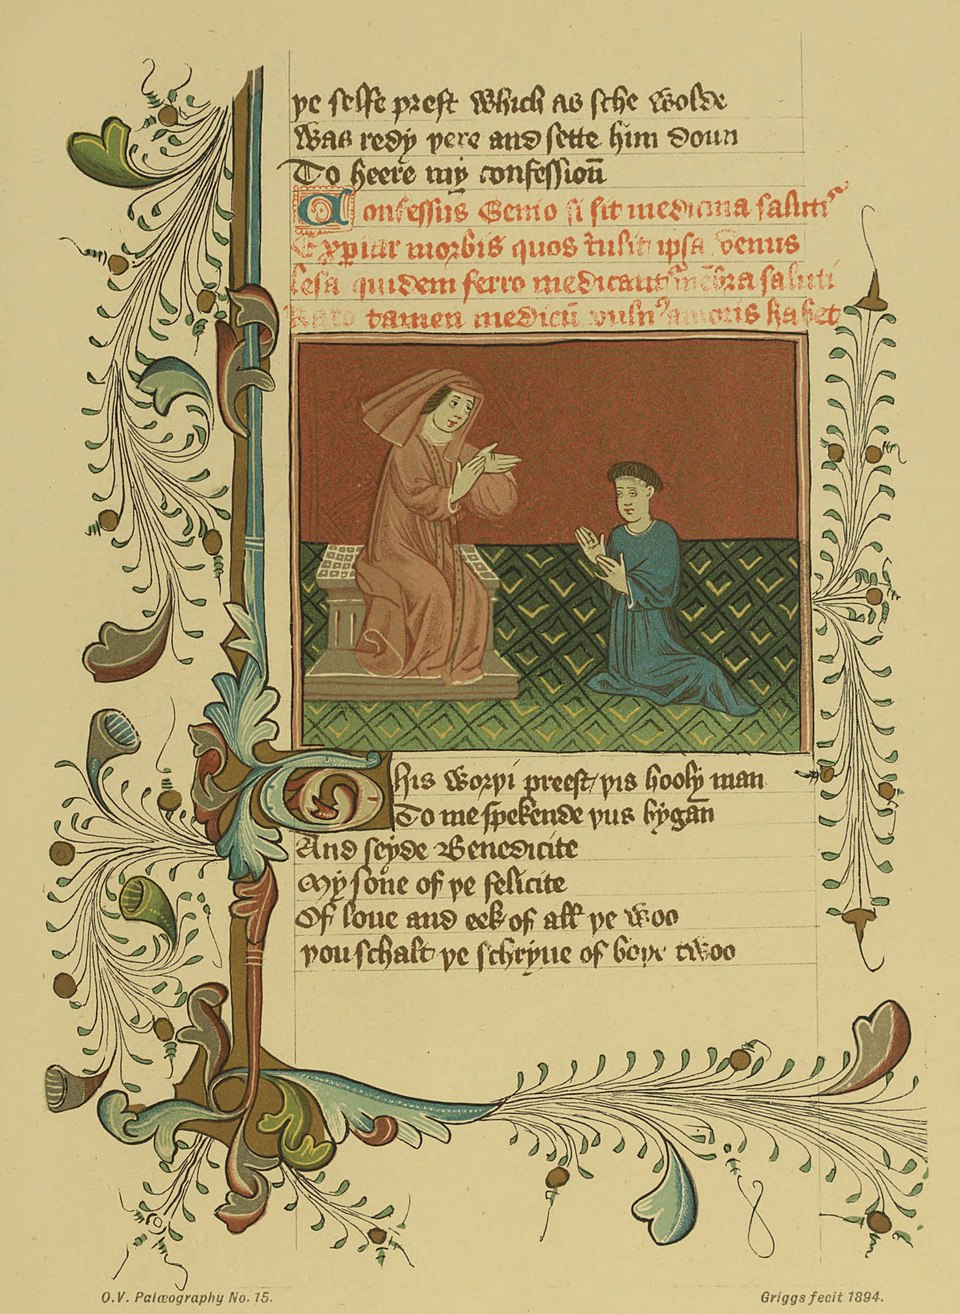 þe selfe prest which as sche wolde
Was redy þere and sette him doun
To heere my confessioñ
Confessus Genio si sit medicina salutis
Expiar morbis quos tulit ipsa venus
lesa quidem ferro medicantur membra saluti
Raro tamen medicū vulnꝰ amoris habet
This worþi preest þis hooly man
To me spekende þus bygan̄
And seyde Benedicite
My sone of þe felicite
Of loue and eek of all þe woo
þou schalt þe schryue of boþe twoo
O.V. Palæography No. 15.
Griggs fecit 1894.